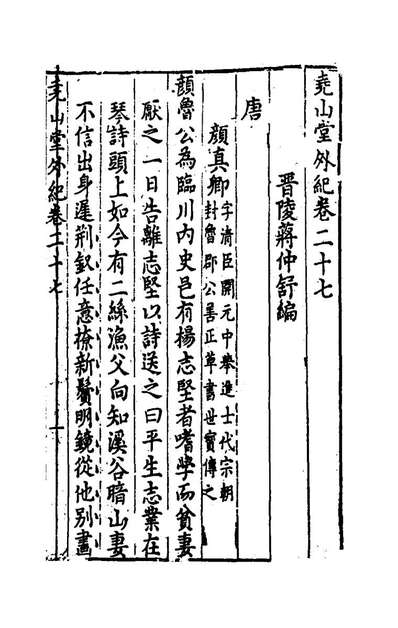 堯山堂外紀卷二十七
晋陵蔣仲舒編
唐
顏真卿字清臣開元中舉進士代宗朝
封魯郡公善正草書世寶傳之
顏魯公為臨川内史邑有楊志堅者嗜學而貧妻
厭之一日告離志堅以詩送之曰平生志業在
琴詩頭上如今有二絲漁父向知溪谷暗山妻
不信出身遲荆釵任意撩新鬢明鏡從他别畫
堯山堂外紀卷二十七